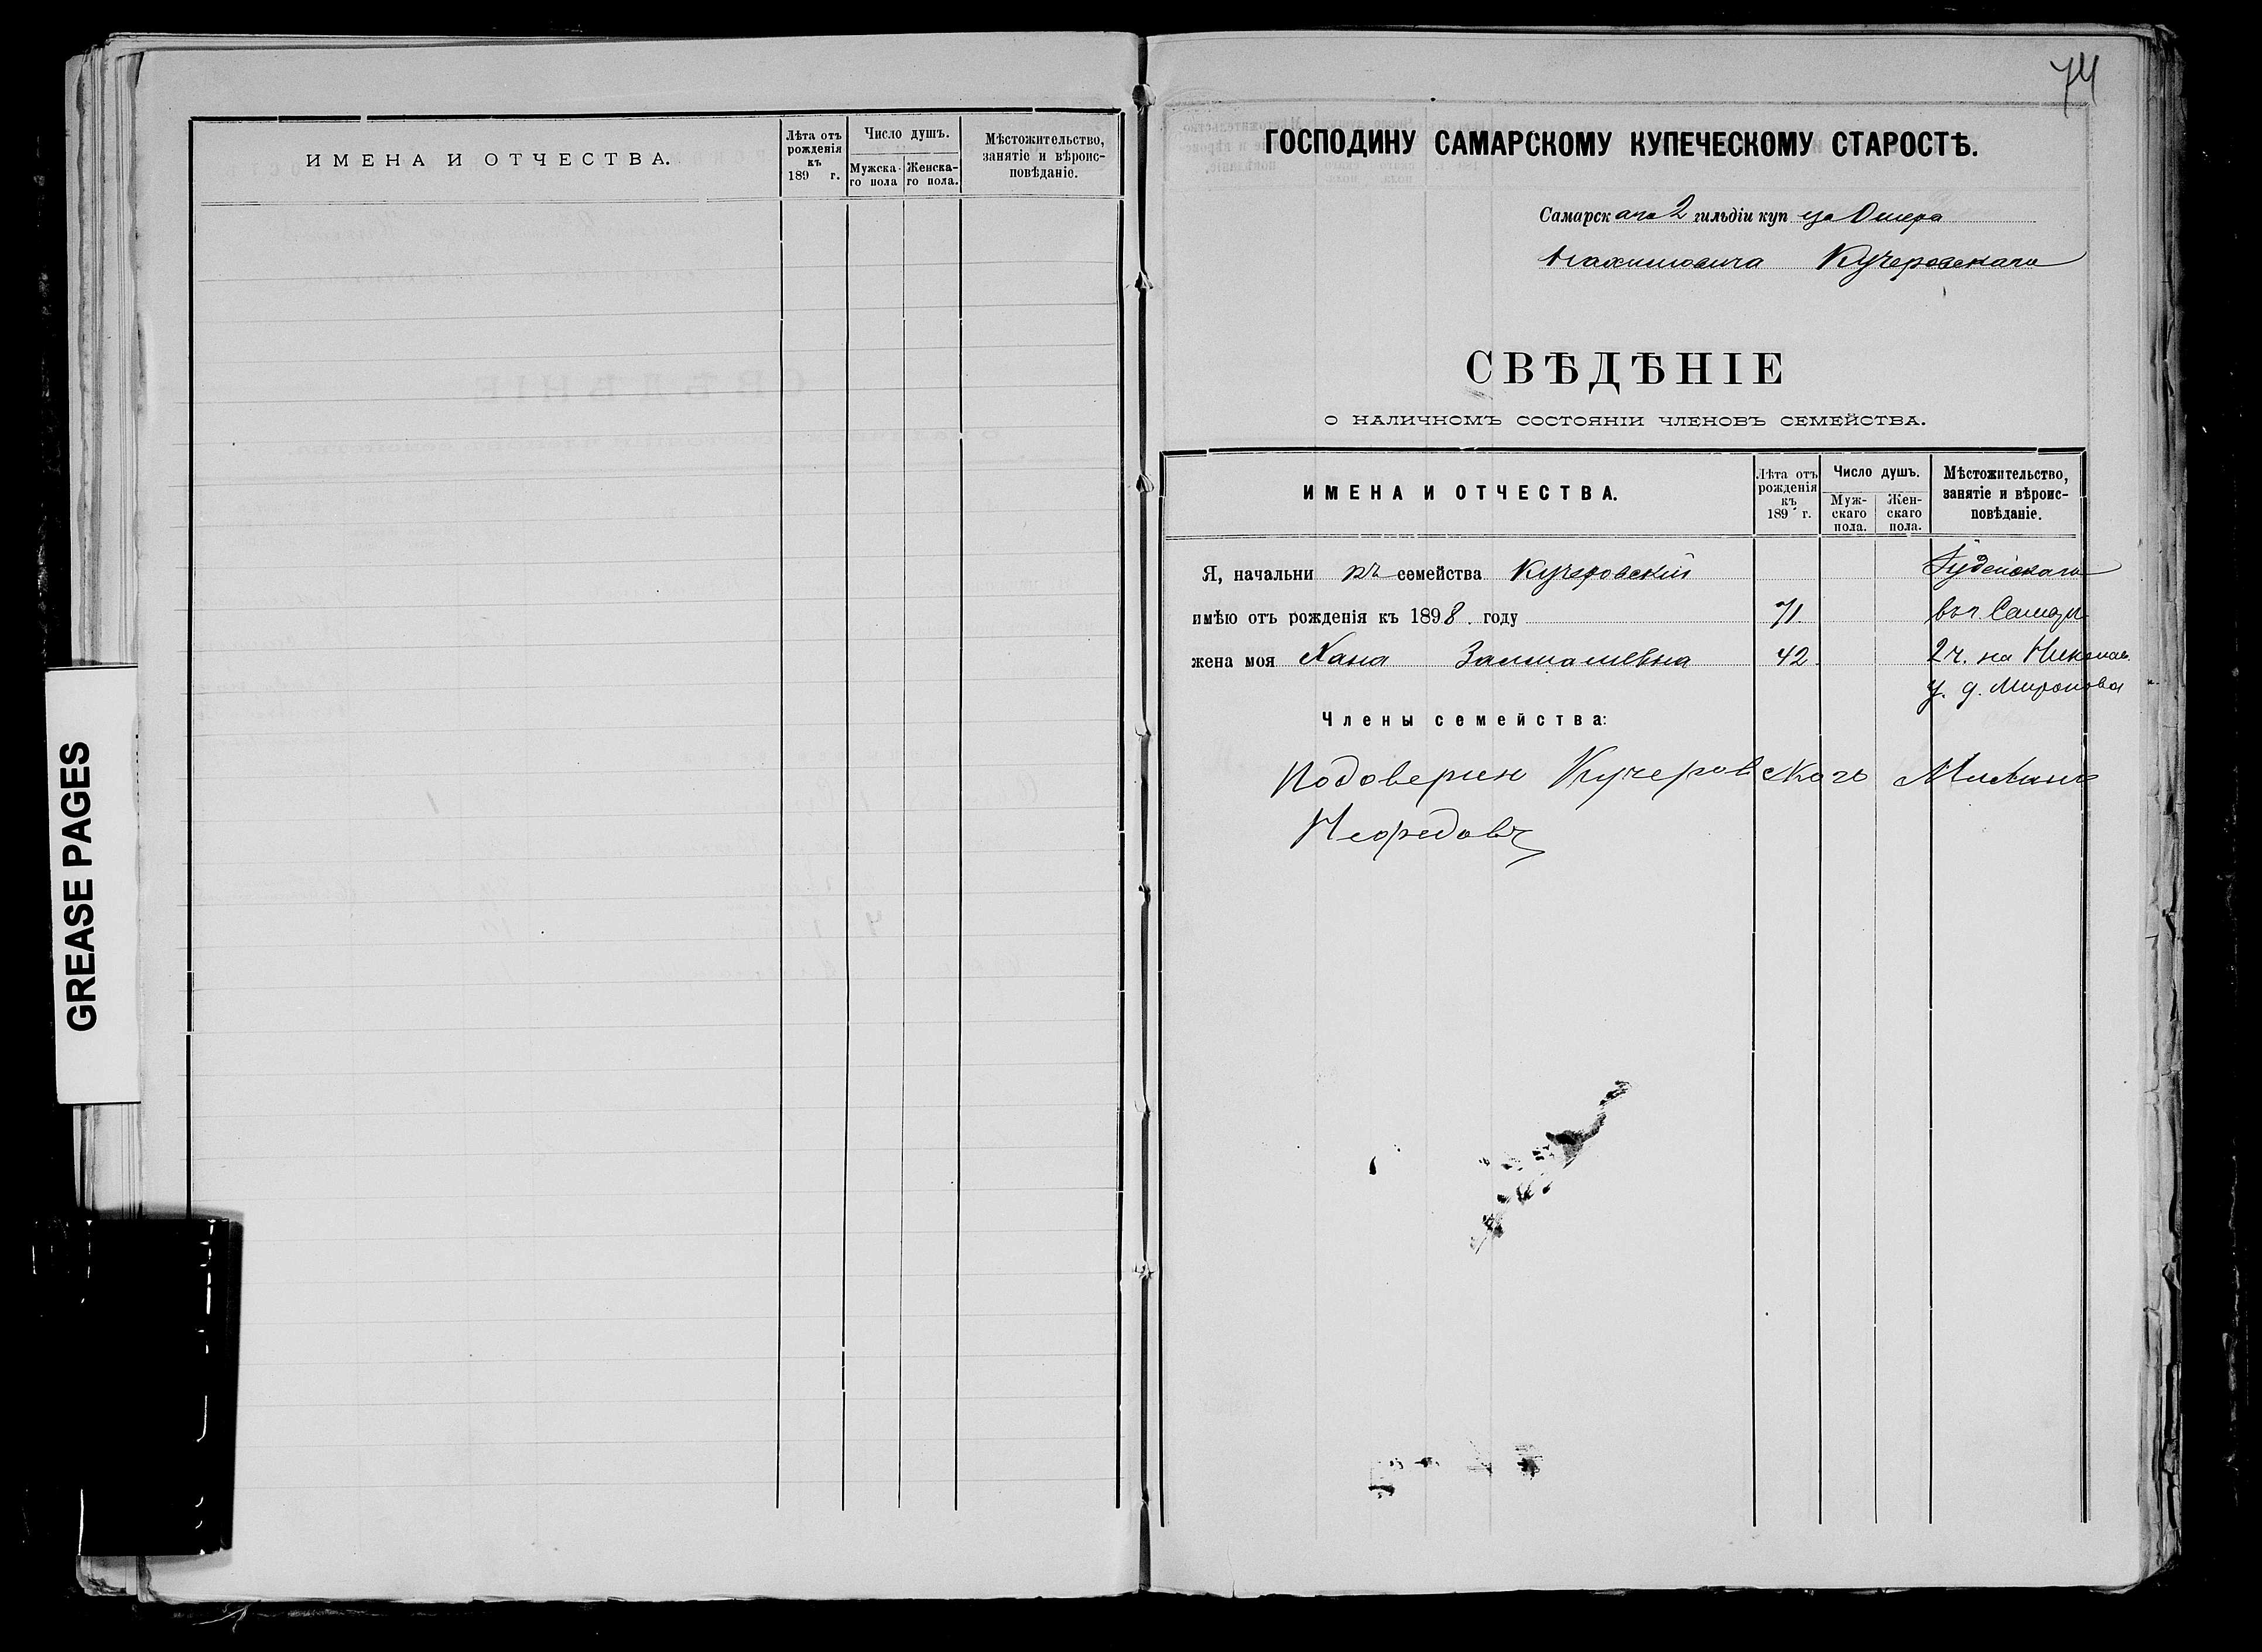 ИМЕНА И ОТЧЕСТВА.
Лѣта отъ рожденія къ 189 г.
Число душъ.
Мужска-го пола
Женска-го пола.
Мѣстожительство, занятіе и вѣроис-повѣданіе.
GREASE PAGES
74
ГОСПОДИНУ САМАРСКОМУ КУПЕЧЕСКОМУ СТАРОСТѢ.
Самарскаго 2 гильдіи купца Ошера
Кучеровскаго
СВѢДѢНІЕ
О НАЛИЧНОМЪ СОСТОЯНІИ ЧЛЕНОВЪ СЕМЕЙСТВА.
ИМЕНА И ОТЧЕСТВА.
Лѣта отъ рожденія къ 189 г.
Число душъ.
Муж-скаго пола.
Жен-скаго пола.
Мѣстожительство, занятіе и вѣроис-повѣданіе.
Я, начальникъ семейства Кучеровскій Іудейскаго
имѣю отъ рожденія къ 1898. году 71. въ г. Самарѣ
жена моя Хана Залмановна 42. 2 ч. на Николаев.
у. д. Миронова
Члены семейства:
Подоверию Кучеровскаго